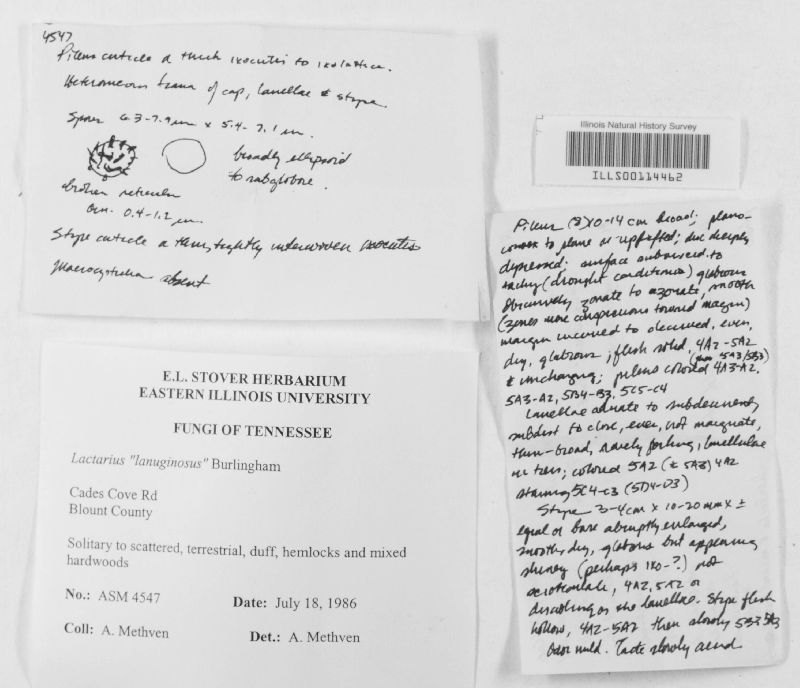 4547
Pileus cuticle a thick ixocutis to ixolattice.
Heteromerous trama of cap, lamellae & stipe.
Spores 6.3-7.9 um x 5.4-7.1 um.
broadly ellipsoid
to subglobose.
broken reticulum
Orn. 0.4-1.2 um.
Stipe cuticle a thin, tightly interwoven ixocutis
Macrocystidia absent
Illinois Natural History Survey
ILLS00114462
E.L. STOVER HERBARIUM
EASTERN ILLINOIS UNIVERSITY
FUNGI OF TENNESSEE
Lactarius "lanuginosus" Burlingham
Cades Cove Rd
Blount County
Solitary to scattered, terrestrial, duff, hemlocks and mixed
hardwoods
No.: ASM 4547 Date: July 18, 1986
Coll: A. Methven Det.: A. Methven
Pileus 10-14 cm broad; plano-
convex to plane or uplifted; disc deeply
depressed; surface subviscid to
tacky (drought conditions) glabrous
obscurely zonate to azonate, smooth
(zones more conspicuous toward margin)
margin incurved to decurved, even,
dry, glabrous; flesh solid, 4A2-5A2
& unchanging; pileus colored 4A3-A2, (than 5A3/5B3)
5A3-A2, 5B4-B3, 5C5-C4
Lamellae adnate to subdecurrent,
subdist to close, even, not marginate,
thin-broad, rarely forking, lamellulae
in tiers; colored 5A2 (± 5A3) 4A2
staining 5C4-C3 (5D4-D3)
Stipe 3-4cm x 10-20mm ±
equal or base abruptly enlarged,
smooth, dry, glabrous but appearing
shiney (perhaps ixo-?) not
scrobiculate, 4A2, 5A2 or
discoloring as the lamellae. Stipe flesh
hollow, 4A2-5A2 then slowly 5B3 5A3
Odor mild. Taste slowly acrid